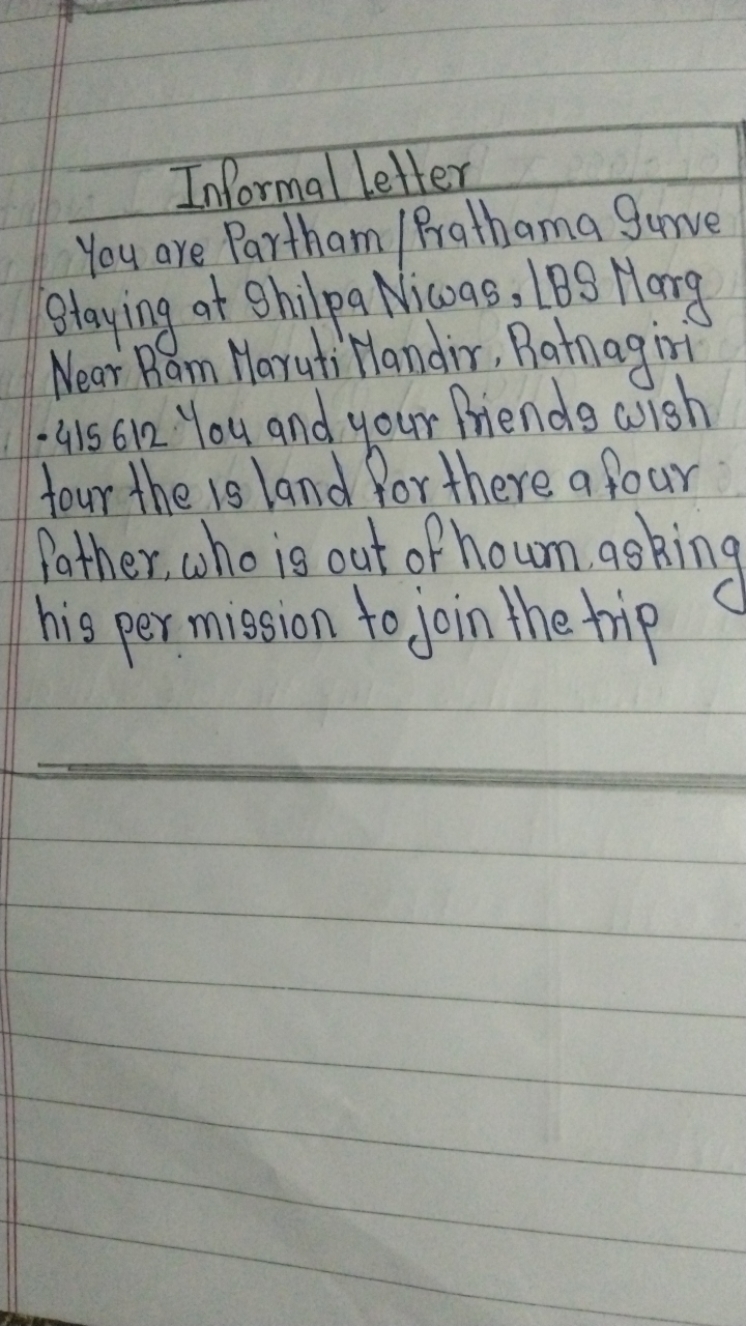 Informal letter
You are Partham / Prathama Gurve
Staying at Shilpa Niwas, LBS Marg
Near Ram Maruti Mandir, Ratnagiri
-415612 You and your friends wish
tour the is land for there a four
father, who is out of houm, asking
his per mission to join the trip